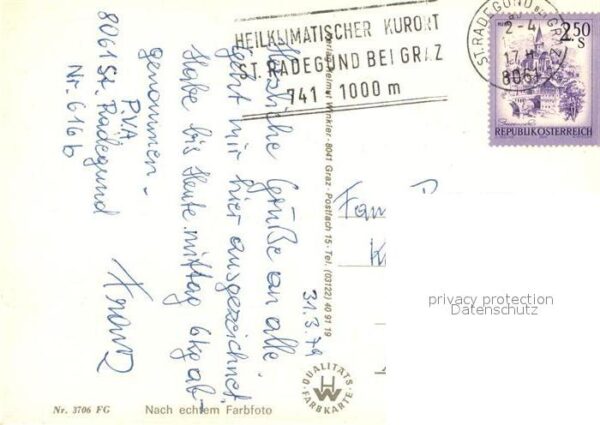 HEILKLIMATISCHER KURORT
ST. RADEGUND BEI GRAZ
741 - 1000 m
ST. RADEGUND BEI GRAZ
2-4
17
8061
2.50
S
REPUBLIK ÖSTERREICH
31.3.79
Herzliche Grüße an alle.
Geht mir hier ausgezeichnet
Habe bis Heute mittag 6kg ab-
genommen.
P.V.A
8061 St. Radegund
Nr. 616b
Franz
Verlag Helmut Winkler · 8041 Graz · Postfach 15 · Tel. (03122) 40 91 19
Fam
privacy protection
Datenschutz
QUALITÄTS-
HW
FARBKARTE
Nr. 3706 FG
Nach echtem Farbfoto